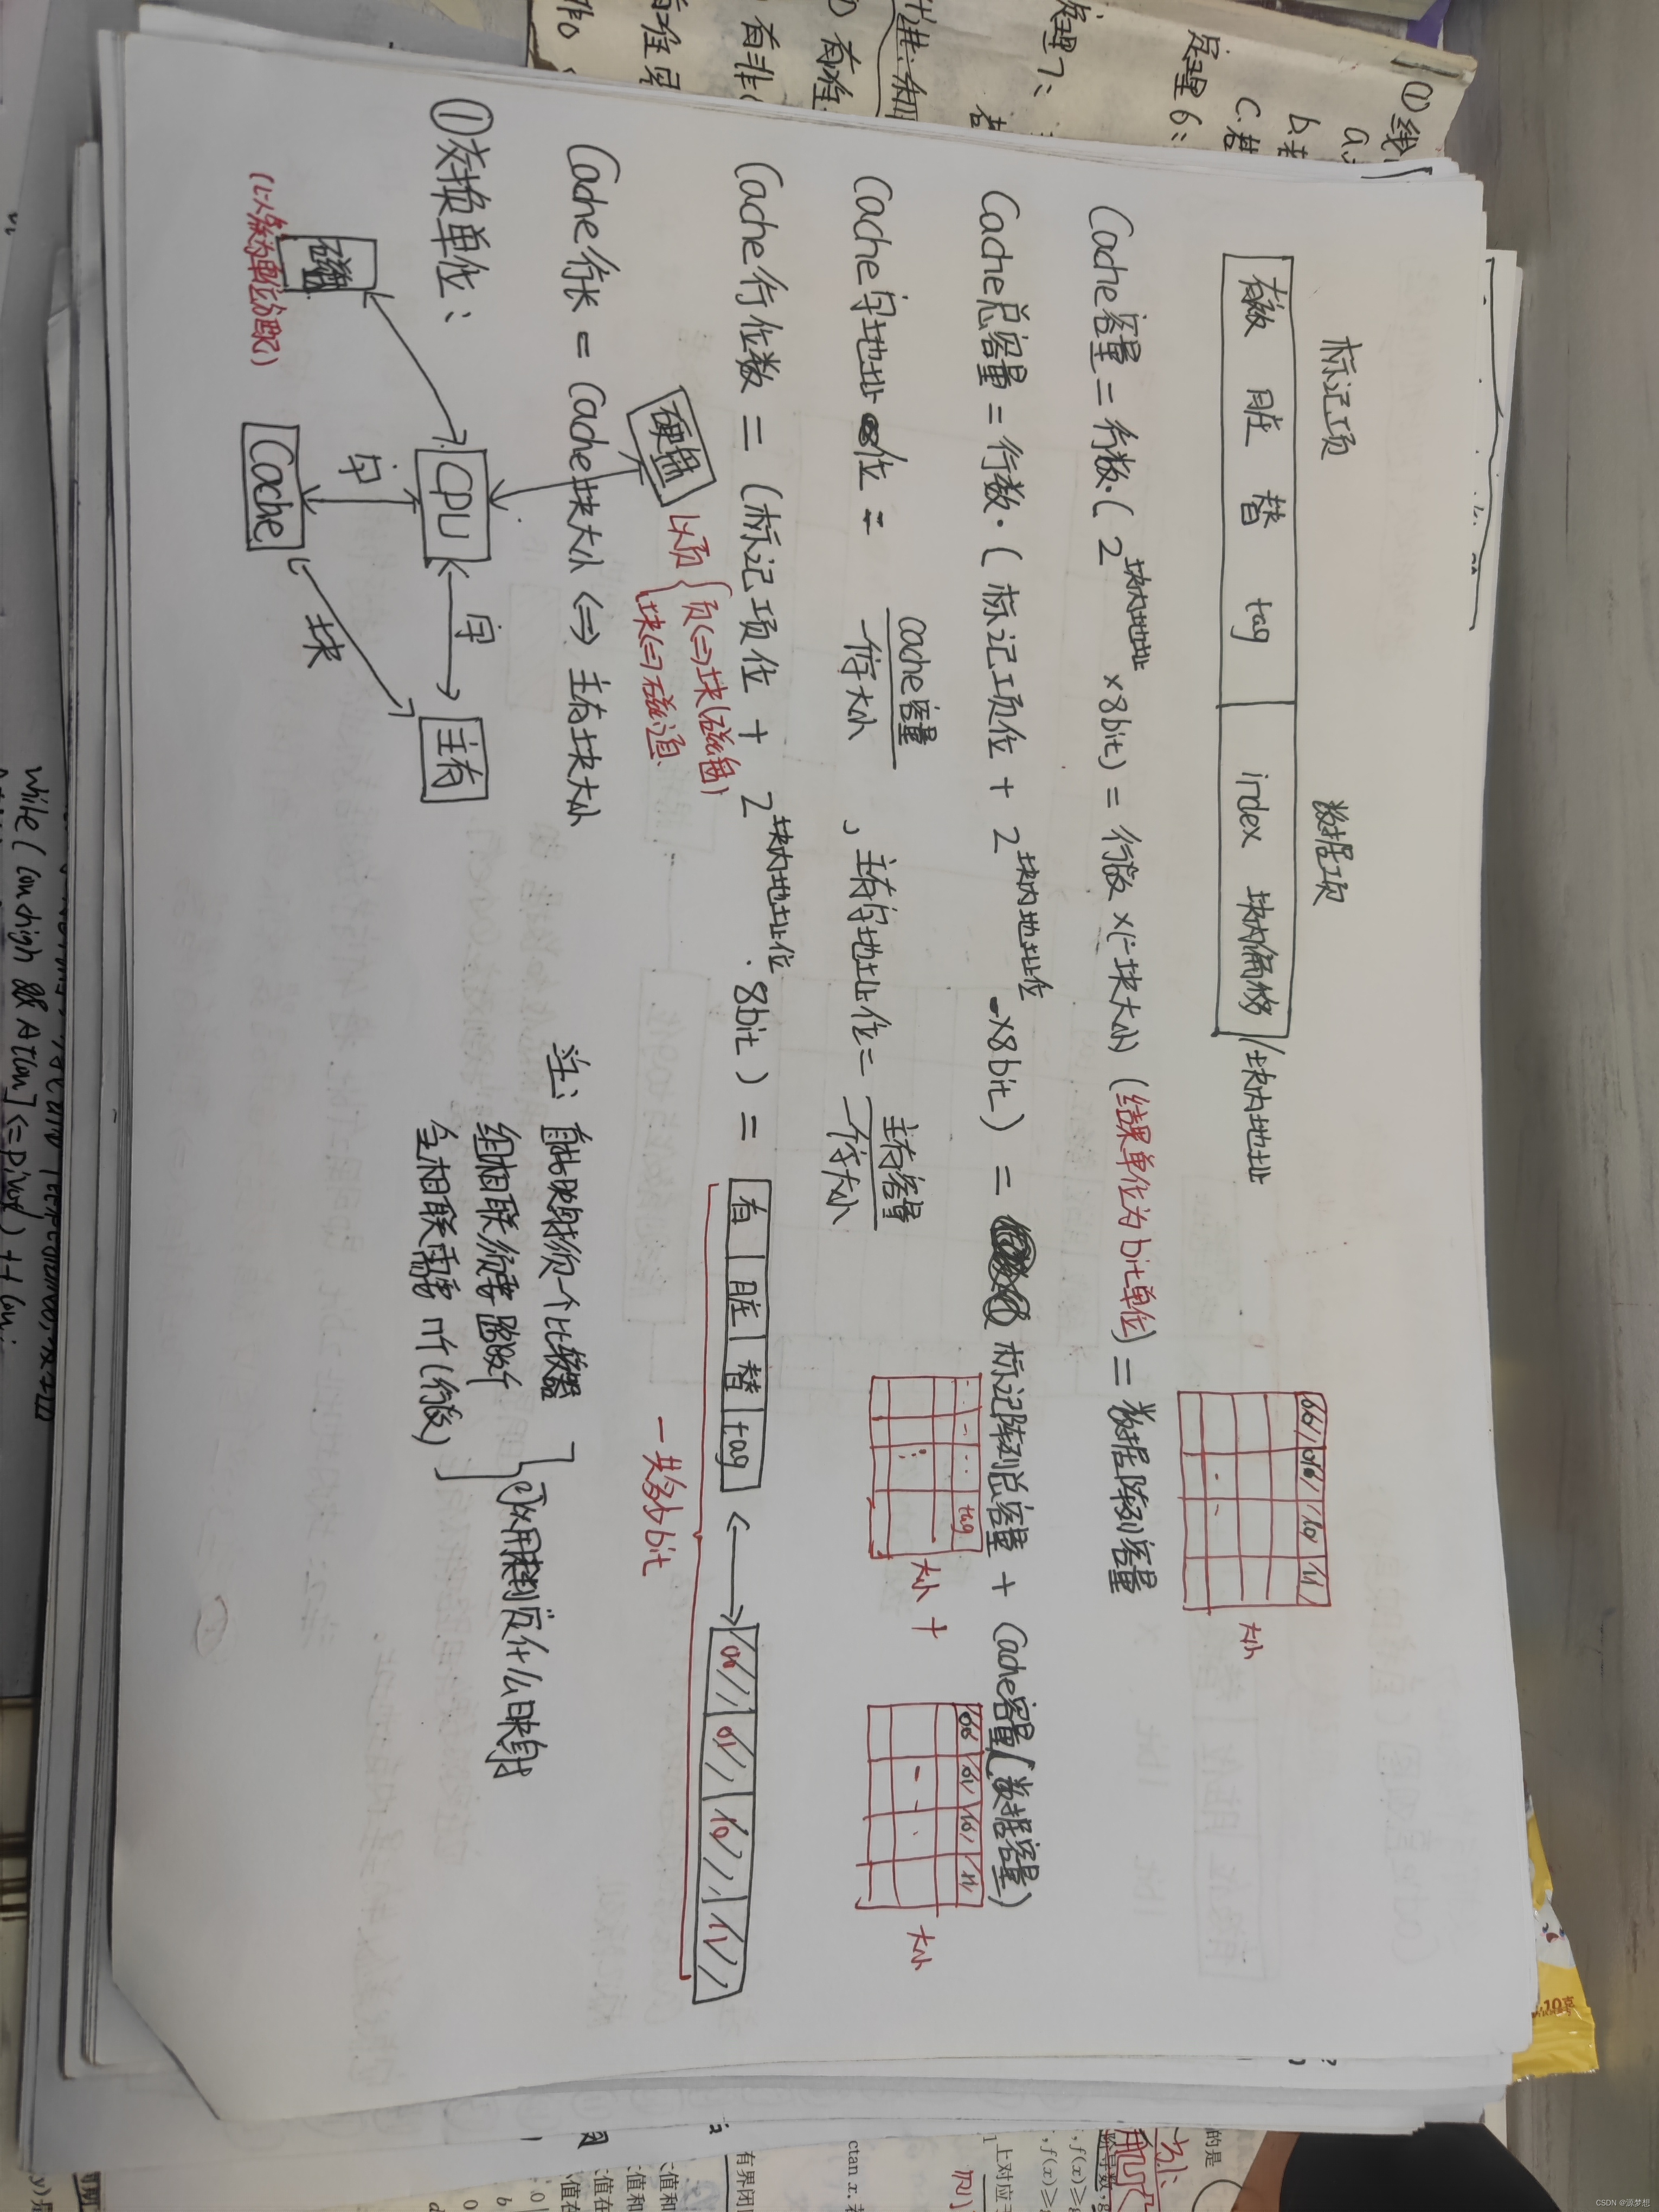 标记项 数据项
有效 脏 替 tag index 块内偏移 /块内地址
Cache容量=行数·(2^块内地址 ×8bit)=行数×(一块大小)(结果单位为bit单位)=数据阵列容量
大小
Cache总容量=行数·(标记项位+2^块内地址位 ×8bit)=标记阵列总容量+Cache容量(数据容量)
tag
大小+
大小
Cache字地址位= Cache容量/一行大小,主存字地址位=主存容量/一行大小
Cache行位数=(标记项位+2^块内地址位·8bit)=
有 脏 替 tag
一共多少bit
硬盘 以页
页<=>块(磁盘)
块<=>磁道
Cache行长=Cache块大小<=>主存块大小
注:直接映射须一个比较器
组相联须要路数个
全相联需要n个(行数)
可以用来判定什么映射
①交换单位:
CPU
字
字
主存
块
Cache
(以簇为单位分配)
while(
A[low]<=pivot) ++low;
定理6:
定理7:
ctan x
10克
CSDN @源梦想